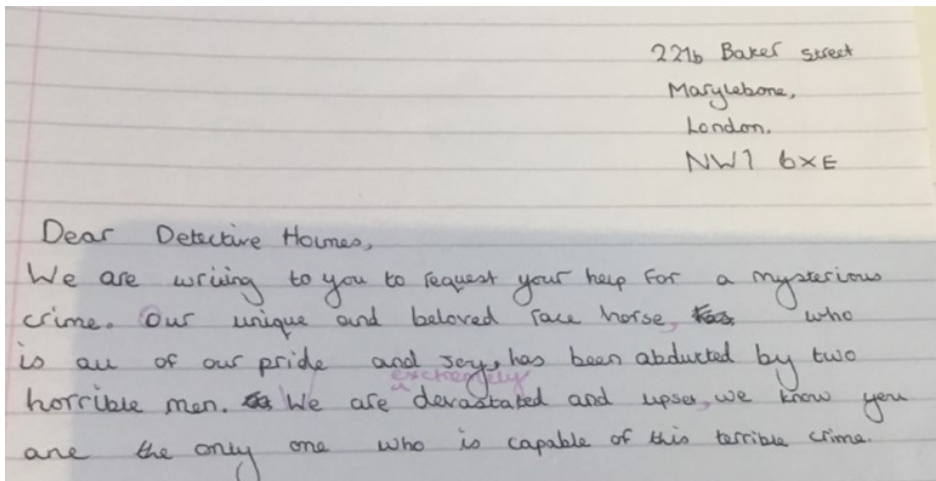 221b Baker street
Marylebone,
London.
NW1 6XE
Dear Detective Holmes,
We are writing to you to request your help for a mysterious
crime. Our unique and beloved race horse, who
is all of our pride and joy, has been abducted by two
extremely
horrible men. We are devastated and upset, we know you
are the only one who is capable of this terrible crime.